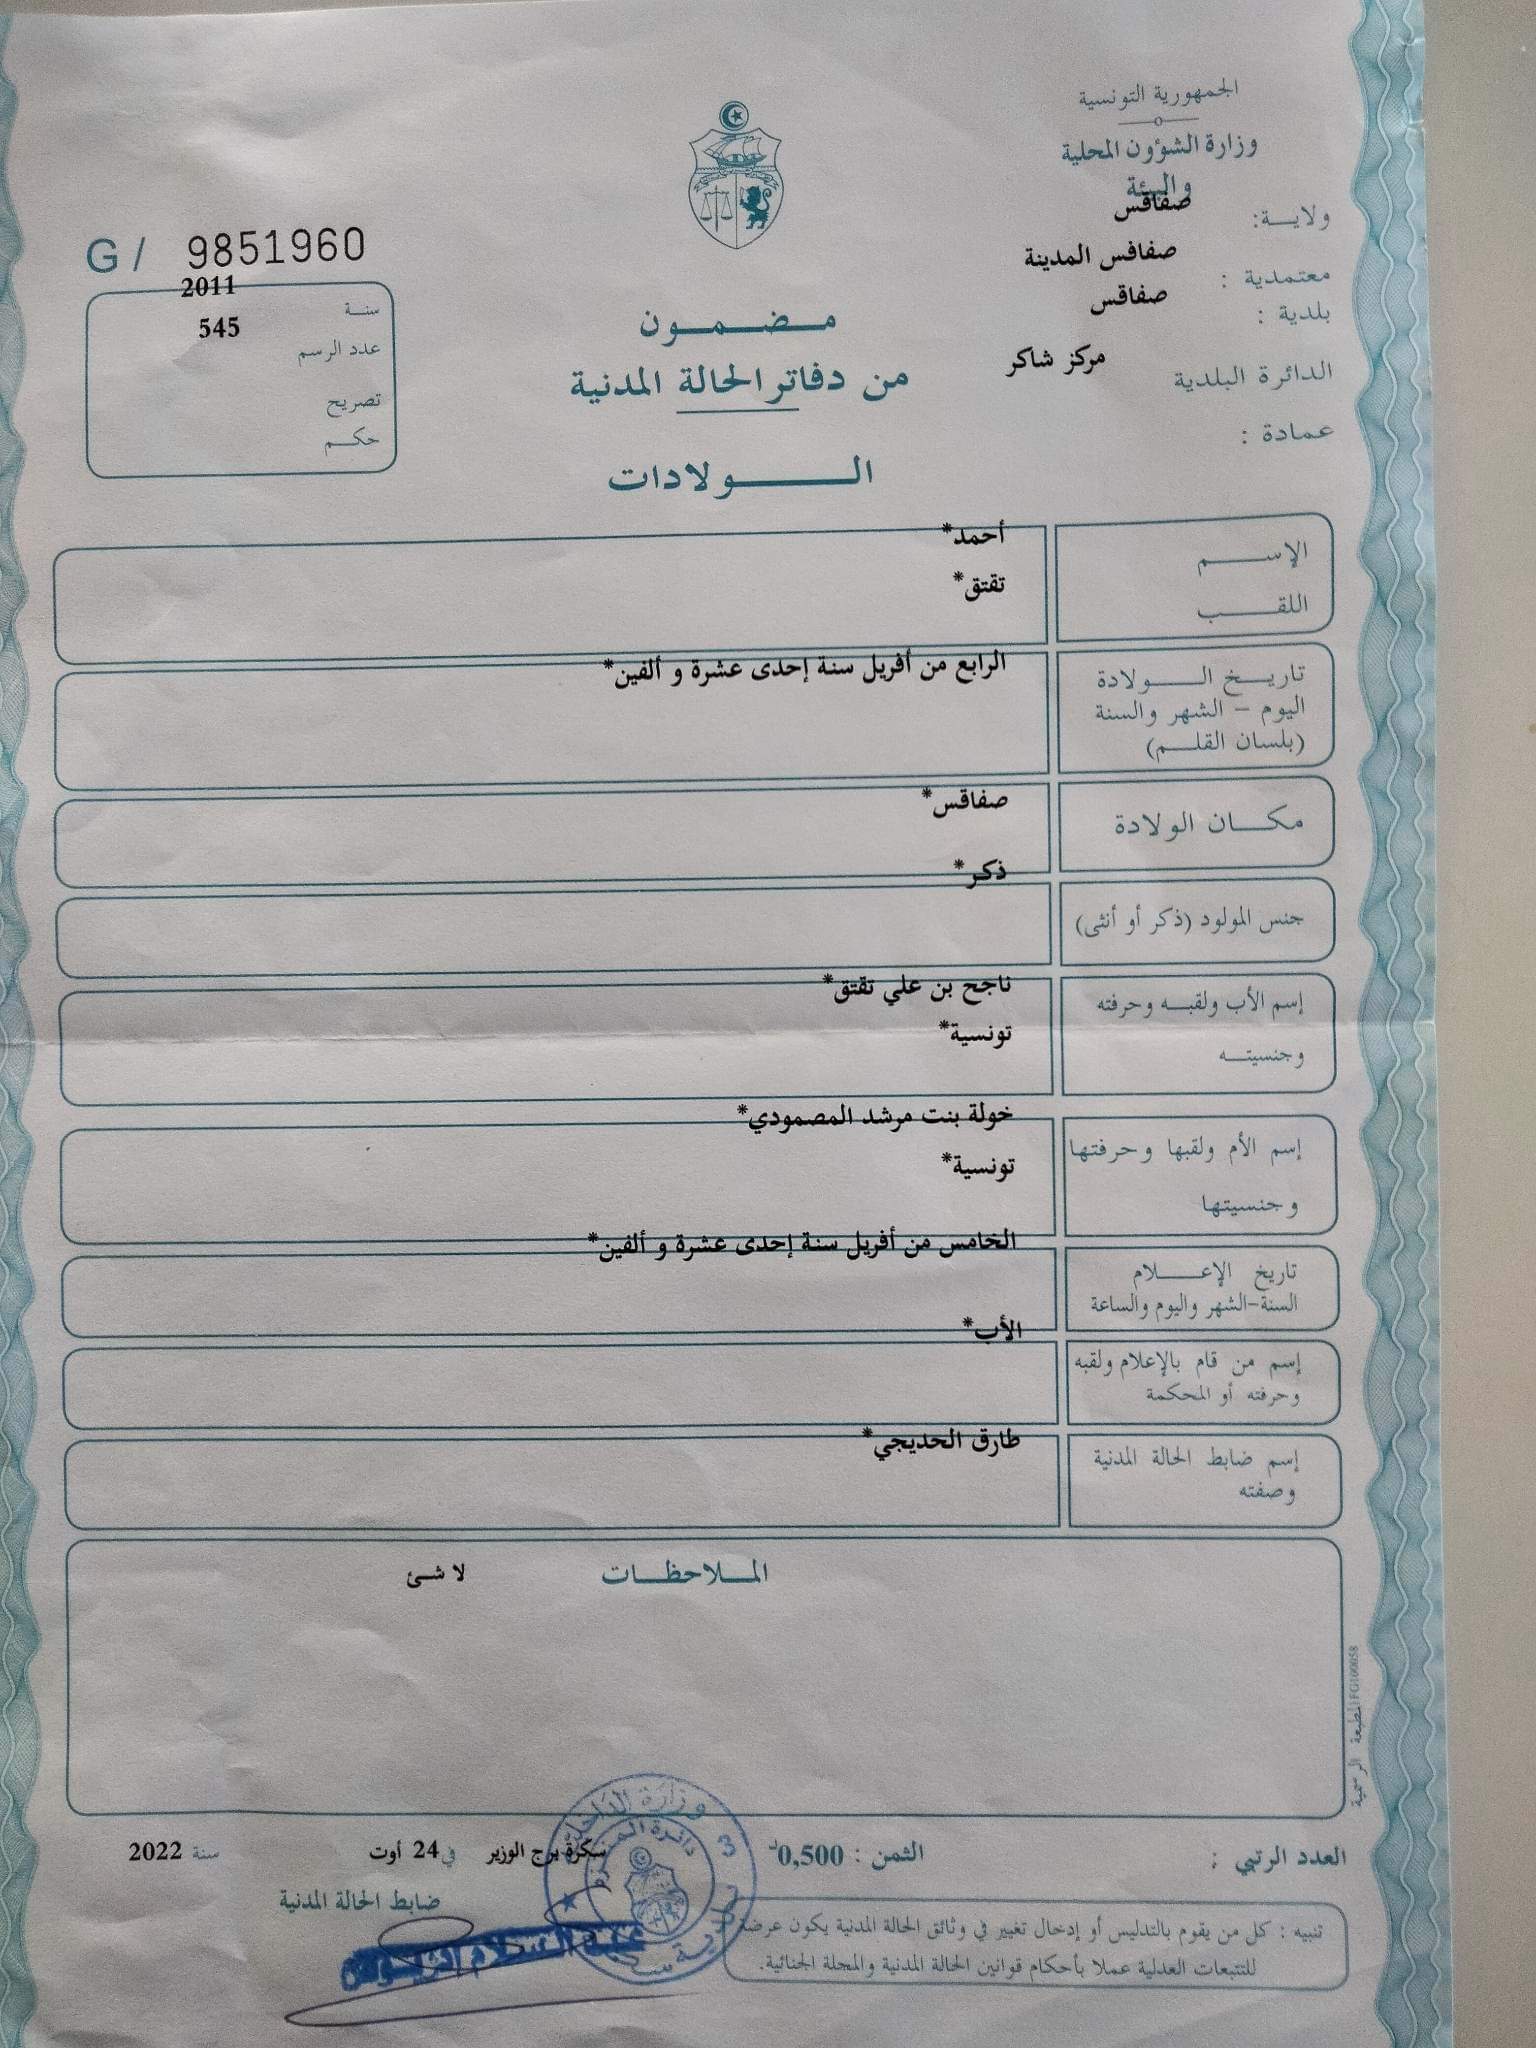 الجمهورية التونسية
وزارة الشؤون المحلية
والبيئة
ولايـــة: صفاقس
معتمدية : صفاقس المدينة
بلدية : صفاقس
الدائرة البلدية مركز شاكر
عمادة :
G / 9851960
سنــة 2011
عدد الرسم 545
تصريح
حكــم
مـــضـــمـــون
من دفاتر الحالة المدنية
الـــــولادات
الإســـــم أحمد*
اللقـــــب تقتق*
تاريــخ الـــــولادة الرابع من أفريل سنة إحدى عشرة و ألفين*
اليوم – الشهر والسنة
(بلسان القلـــم)
مكـــان الولادة صفاقس*
جنس المولود (ذكر أو أنثى) ذكر*
إسم الأب ولقبــه وحرفته ناجح بن علي تقتق*
وجنسيتــه تونسية*
إسم الأم ولقبها وحرفتها خولة بنت مرشد المصمودي*
وجنسيتها تونسية*
تاريخ الإعـــــلام الخامس من أفريل سنة إحدى عشرة و ألفين*
السنة-الشهر واليوم والساعة
إسم من قام بالإعلام ولقبه الأب*
وحرفته أو المحكمة
إسم ضابط الحالة المدنية طارق الحديجي*
وصفته
المـــلاحظـــات لا شئ
المطبعة الرسمية FG100058
العدد الرتبي : الثمن : 0,500د سكرة برج الوزير في 24 أوت سنة 2022
ضابط الحالة المدنية
وزارة الداخلية
3
عبد السلام
تنبيه : كل من يقوم بالتدليس أو إدخال تغيير في وثائق الحالة المدنية يكون عرضة
للتتبعات العدلية عملا بأحكام قوانين الحالة المدنية والمجلة الجنائية.